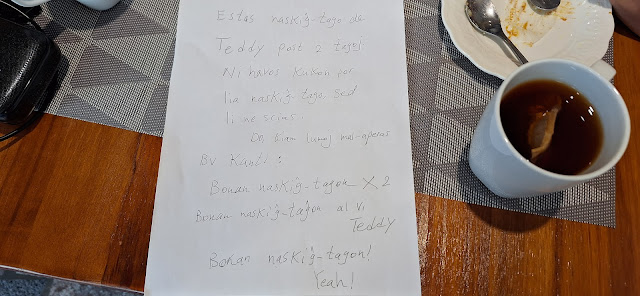 Estas naskiĝ-tago de
Teddy post 2 tagoj
Ni havos kukon por
lia naskiĝ-tago sed
li ne scias.
Do kiam lumoj mal-operas
Bv Kanti:
Bonan naskiĝ-tagon X 2
Bonan naskiĝ-tagon al vi
Teddy
Bonan naskiĝ-tagon!
Yeah!